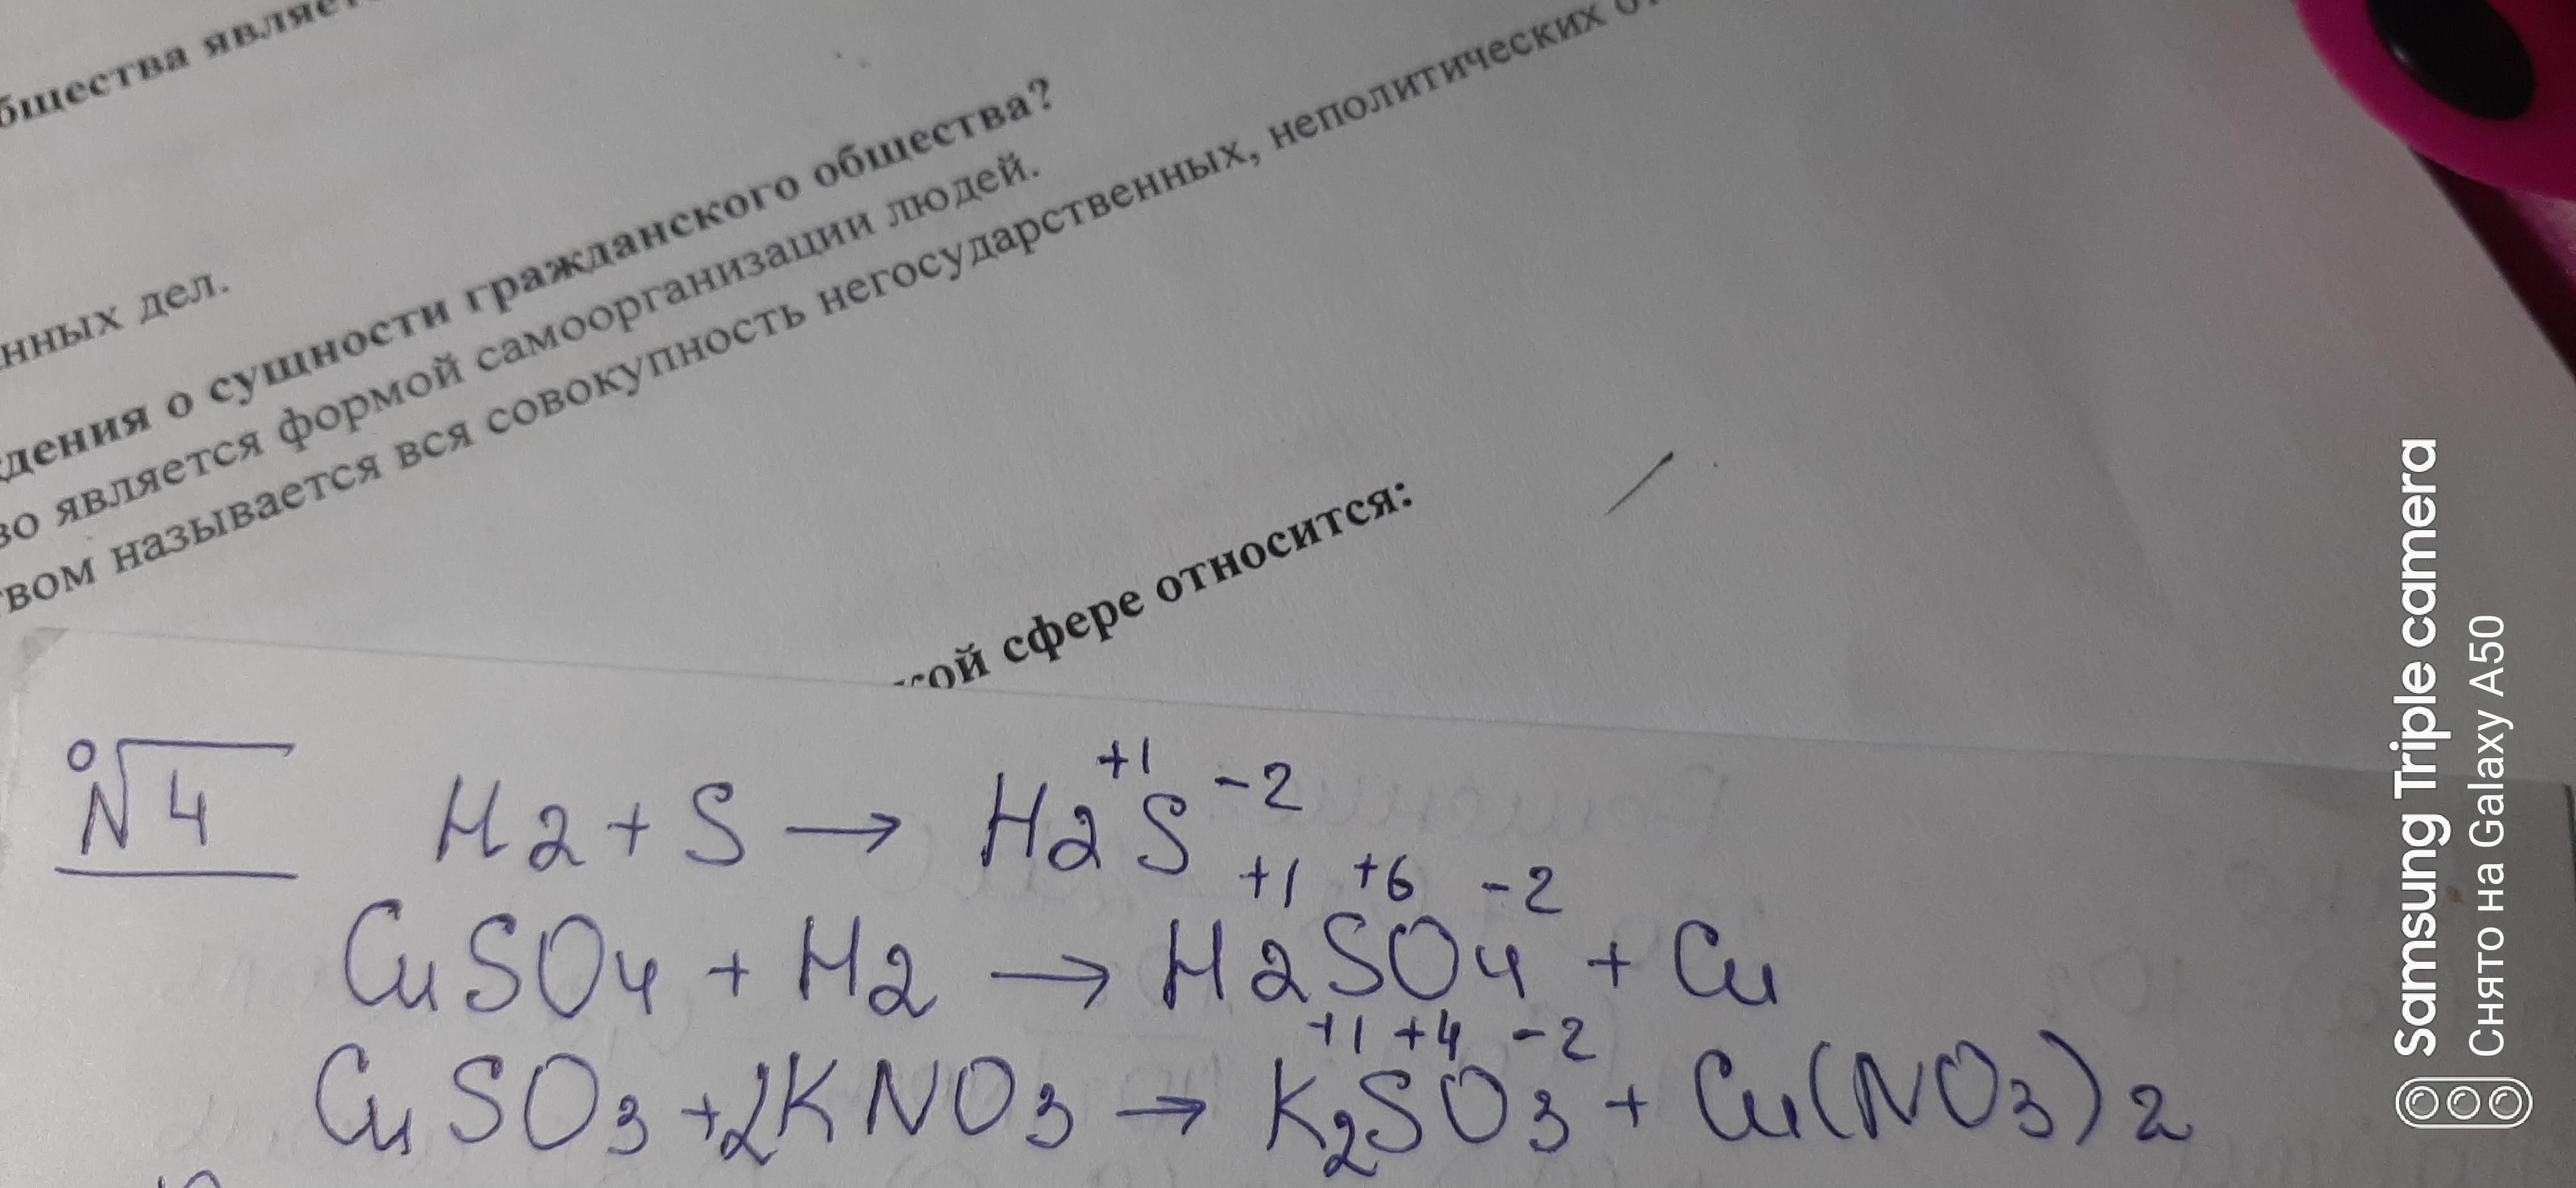 общества являе
нных дел.
дения о сущности гражданского общества?
во является формой самоорганизации людей.
твом называется вся совокупность негосударственных, неполитических о
кой сфере относится:
N°4 H2 + S → H2+1S-2
CuSO4 + H2 → H2+1S+6O4-2 + Cu
CuSO3 + 2KNO3 → K2+1S+4O3-2 + Cu(NO3)2
Samsung Triple camera
Снято на Galaxy A50